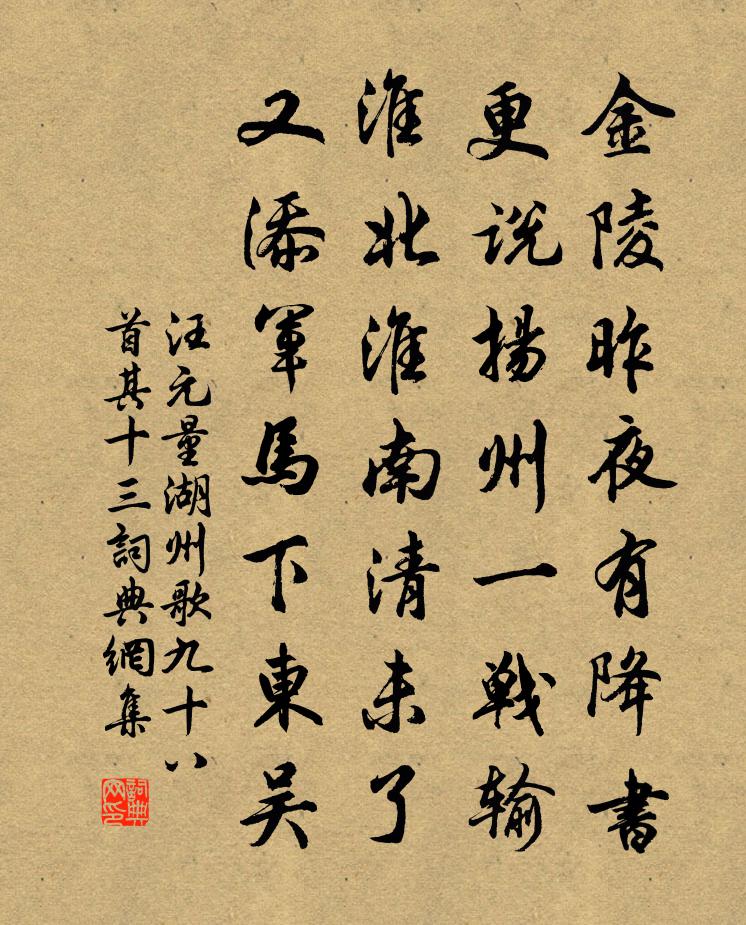 金陵昨夜有降書
更説揚州一戦輸
淮北淮南清未了
又添軍馬下東吴
汪元量湖州歌九十八
首其十三詞典網集
詞典网印